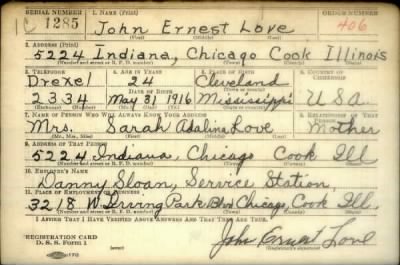 SERIAL NUMBER 1. NAME (Print) ORDER NUMBER
C 1285 John Ernest Love 406
(First) (Middle) (Last)
2. ADDRESS (Print)
5224 Indiana, Chicago Cook Illinois
(Number and street or R. F. D. number) (Town) (County) (State)
3. TELEPHONE 4. AGE IN YEARS 5. PLACE OF BIRTH 6. COUNTRY OF CITIZENSHIP
Drexel 24 Cleveland
2334 May 31, 1916 Mississippi USA
7. NAME OF PERSON WHO WILL ALWAYS KNOW YOUR ADDRESS 8. RELATIONSHIP OF THAT PERSON
Mrs. Sarah Adaline Love Mother
(Mr., Mrs., Miss) (First) (Middle) (Last)
9. ADDRESS OF THAT PERSON
5224 Indiana, Chicago Cook Ill
(Number and street or R. F. D. number) (Town) (County) (State)
10. EMPLOYER'S NAME
Danny Sloan, Service Station,
11. PLACE OF EMPLOYMENT OR BUSINESS
3218 W. Irving Park Blvd Chicago, Cook Ill.
(Number and street or R. F. D. number) (Town) (County) (State)
I AFFIRM THAT I HAVE VERIFIED ABOVE ANSWERS AND THAT THEY ARE TRUE.
REGISTRATION CARD
D. S. S. Form 1 John Ernest Love
(Registrant's signature)